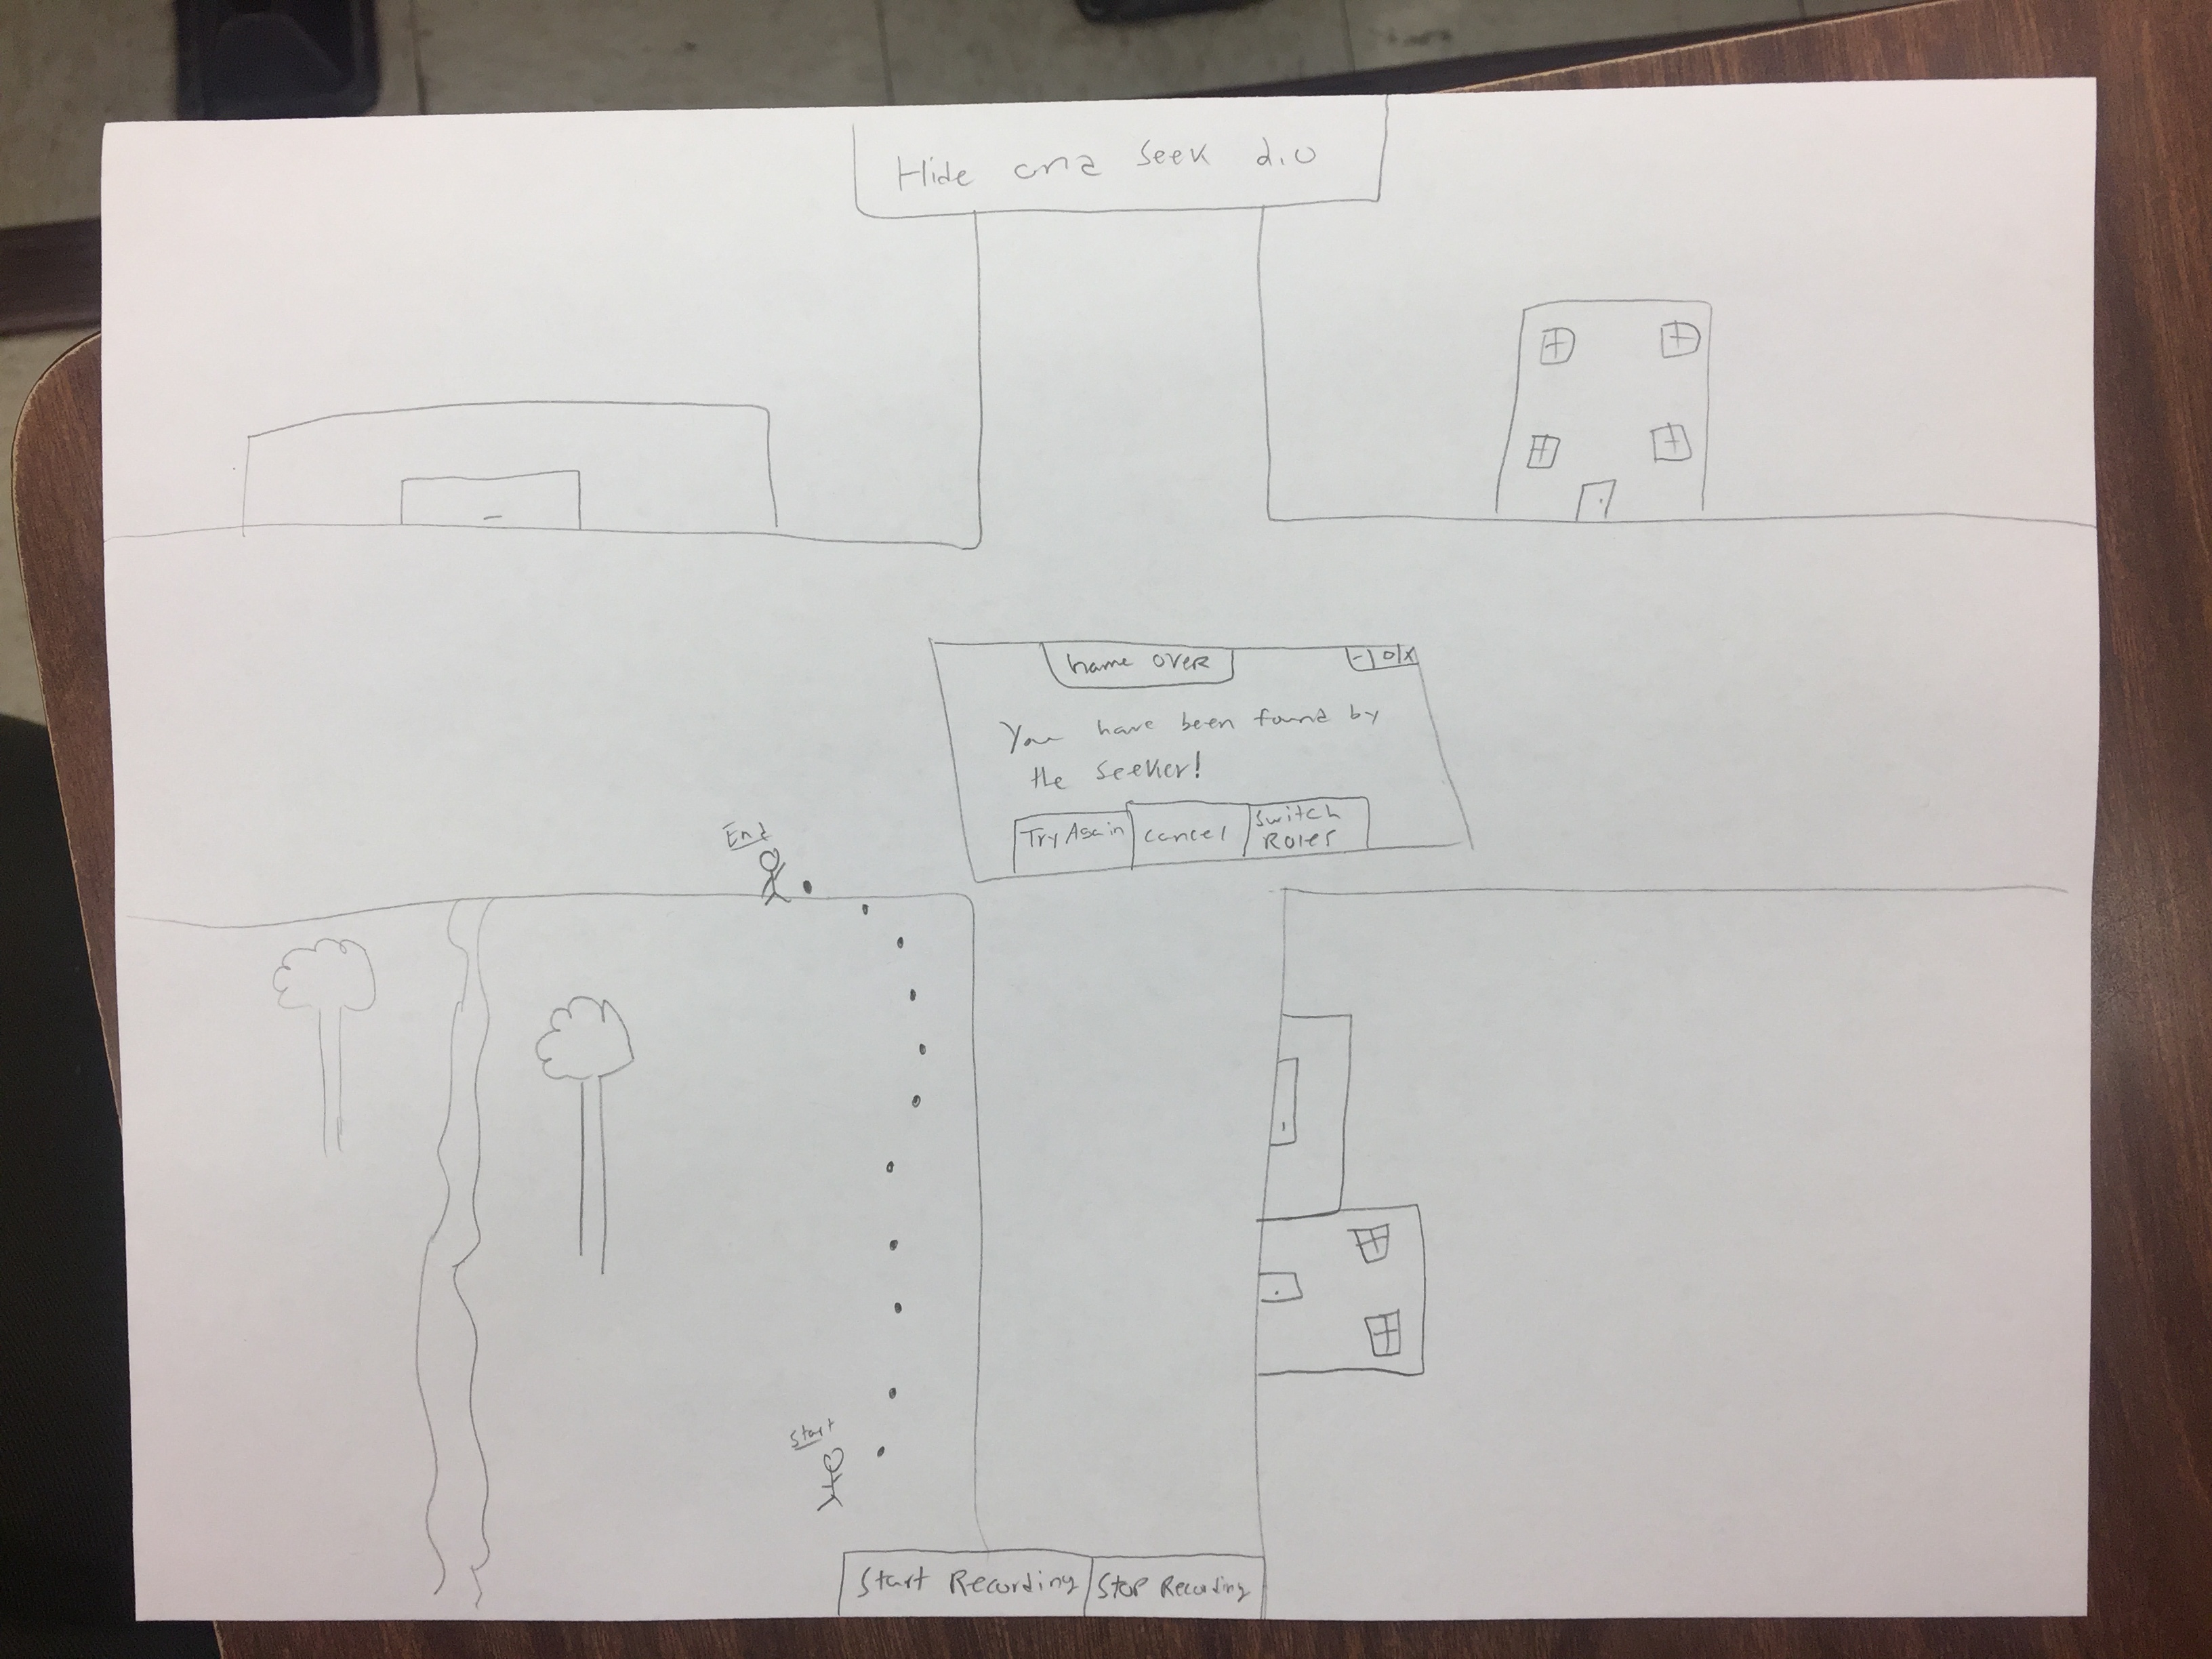 Hide and Seek 2.0
Game OVER
- O X
You have been found by
the Seeker!
Try Again
Cancel
Switch
Roles
End
Start
Start Recording
Stop Recording